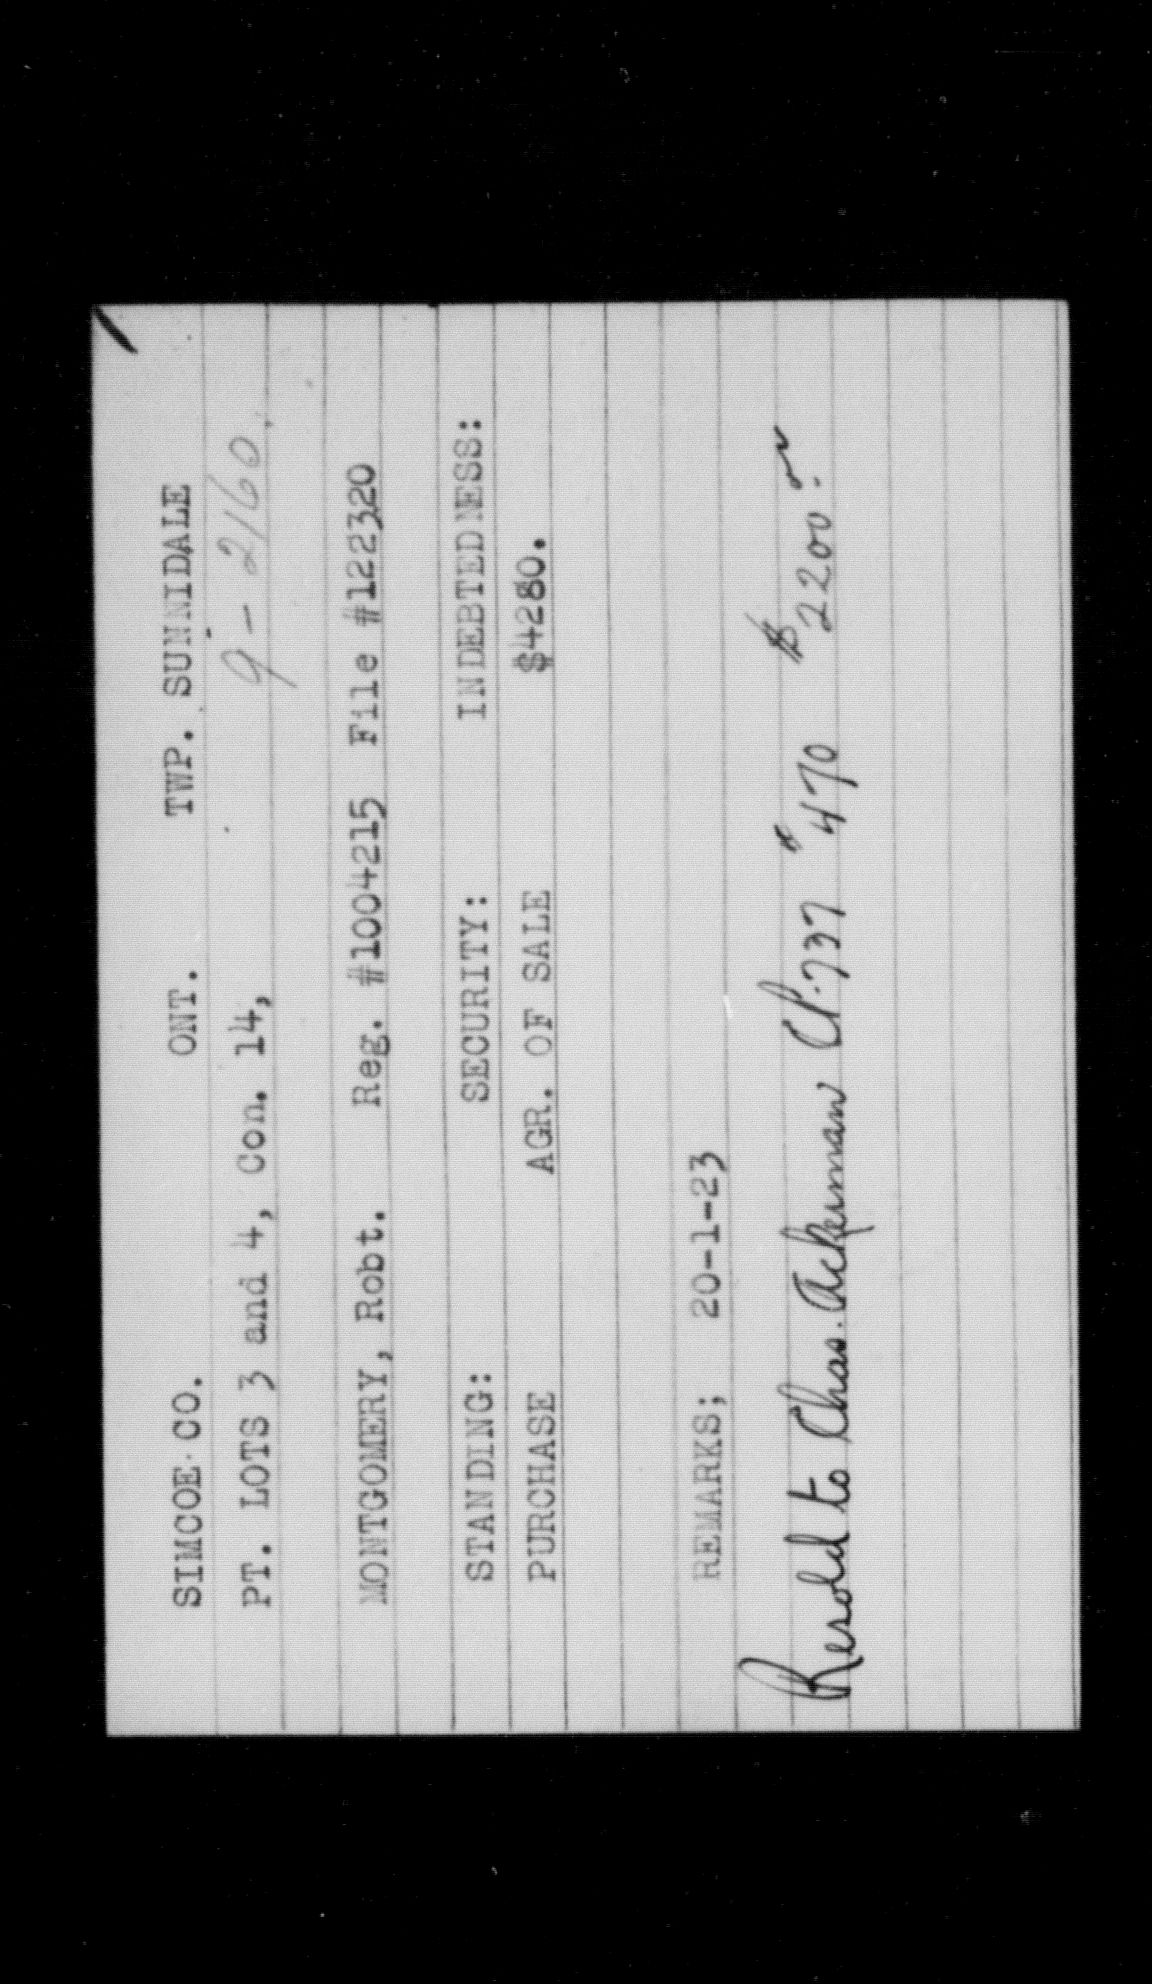 SIMCOE CO. ONT. TWP. SUNNIDALE
PT. LOTS 3 and 4, Con. 14, 9-2160.
MONTGOMERY, Robt. Reg. #1004215 File #122320
STANDING: SECURITY: INDEBTEDNESS:
PURCHASE AGR. OF SALE $4280.
REMARKS; 20-1-23
Resold to Chas. Ackerman 737 470 $2200